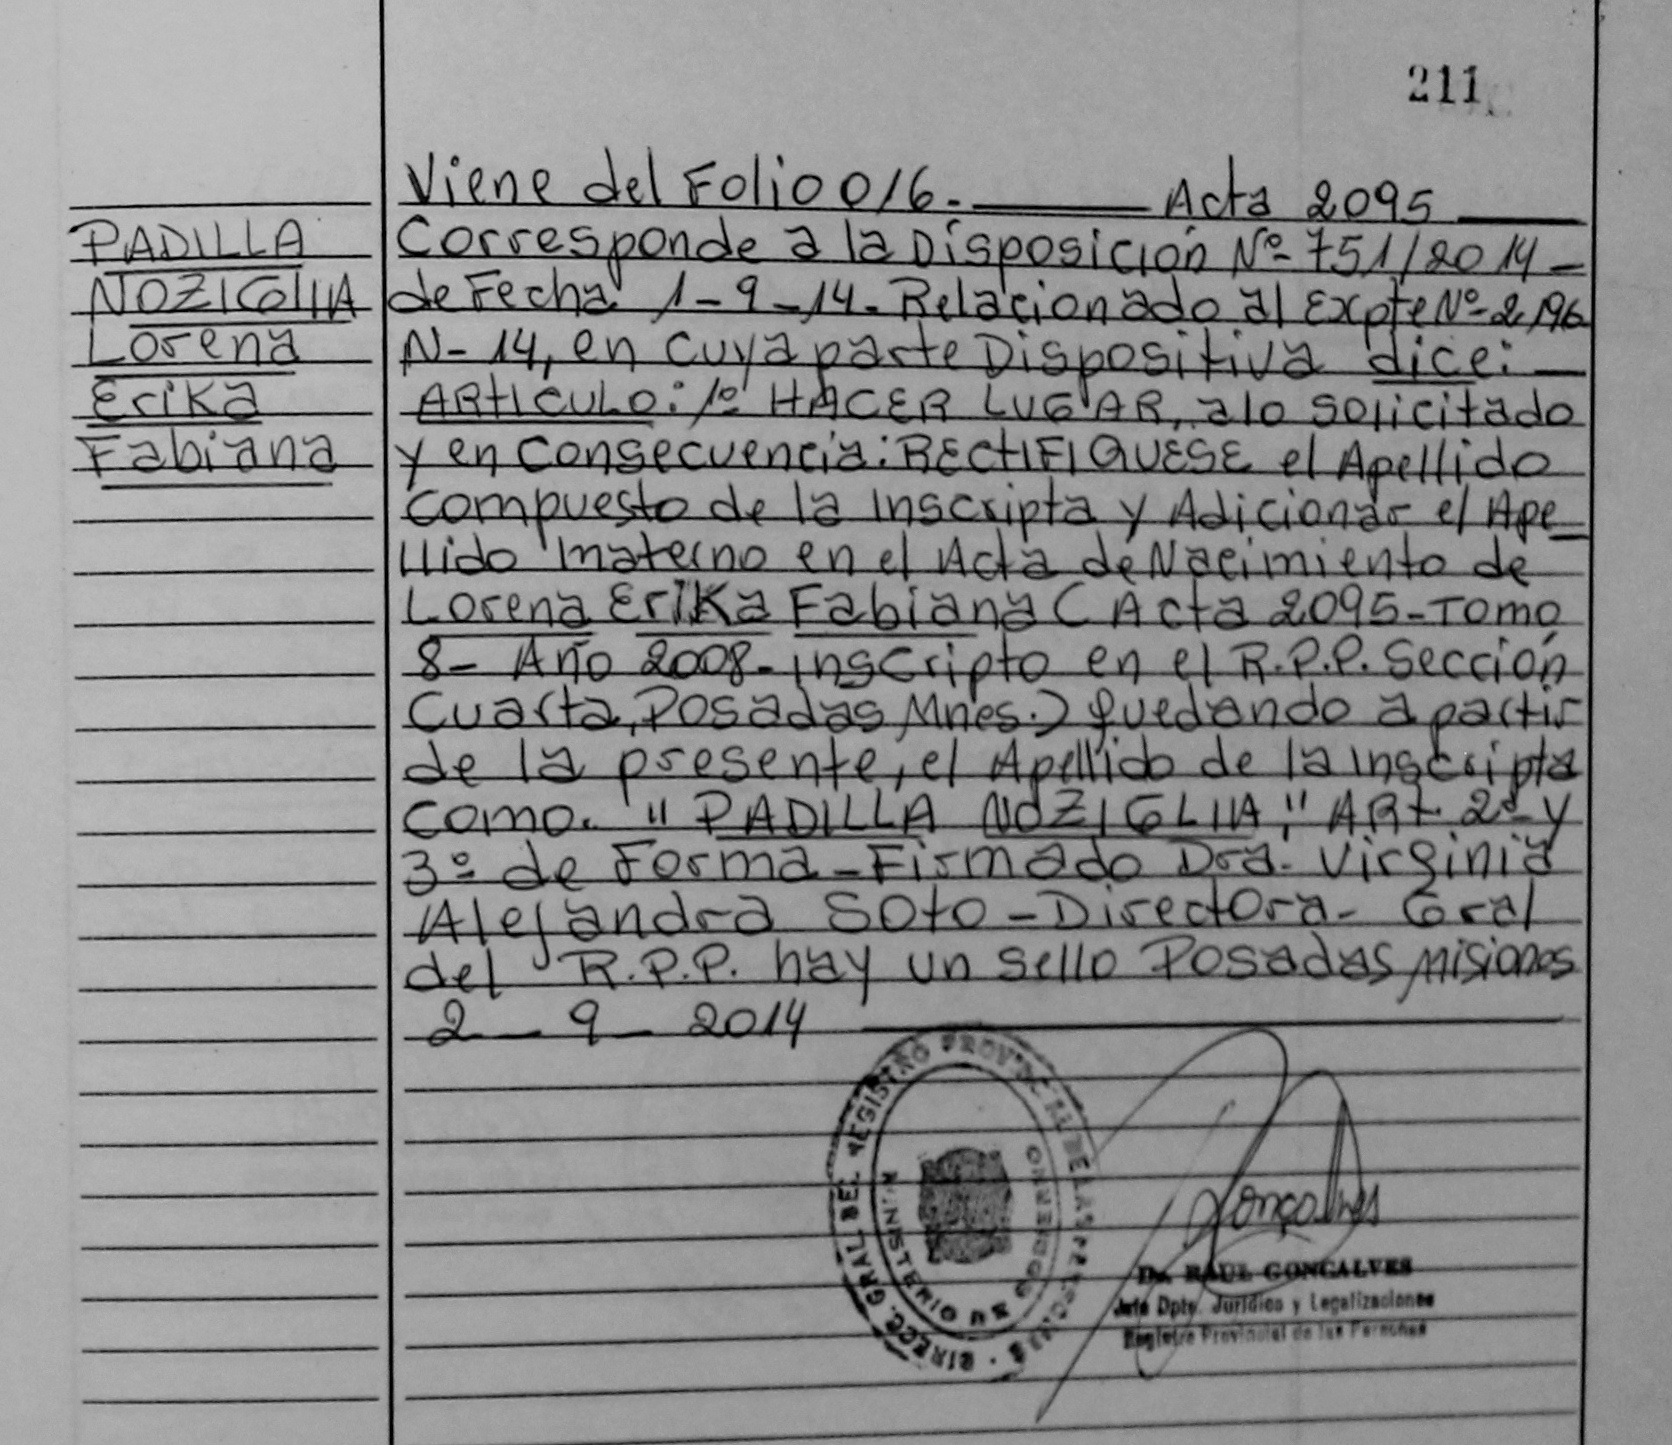 211
Viene del Folio 016. Acta 2095
PADILLA
NOZIGLIIA
Lorena
Erika
Fabiana
Corresponde a la Disposición Nº 751/2014 -
de Fecha 1-9-14. Relacionado al Expte Nº 2196
N-14, en cuya parte Dispositiva dice: -
ARTICULO: 1º HACER LUGAR, a lo solicitado
y en Consecuencia: RECTIFIQUESE el Apellido
compuesto de la Inscripta y Adicionar el Ape
llido materno en el Acta de Nacimiento de
Lorena Erika Fabiana ( Acta 2095 - Tomo
8 - Año 2008 - inscripto en el R.P.P. Sección
Cuarta, Posadas, Mnes.) quedando a partir
de la presente, el Apellido de la inscripta
como. "PADILLA NOZIGLIIA," ARt. 2º y
3º de Forma - Firmado Dra. Virginia
Alejandra Soto - Directora - Gral
del R.P.P. hay un sello Posadas, Misiones
2 - 9 - 2014
DIRECC. GRAL DEL REGISTRO PROVINCIAL DE LAS PERSONAS
MINISTERIO DE GOBIERNO
Gonçalves
Dr. RAUL GONCALVES
Jefe Dpto. Jurídico y Legalizaciones
Registro Provincial de las Personas